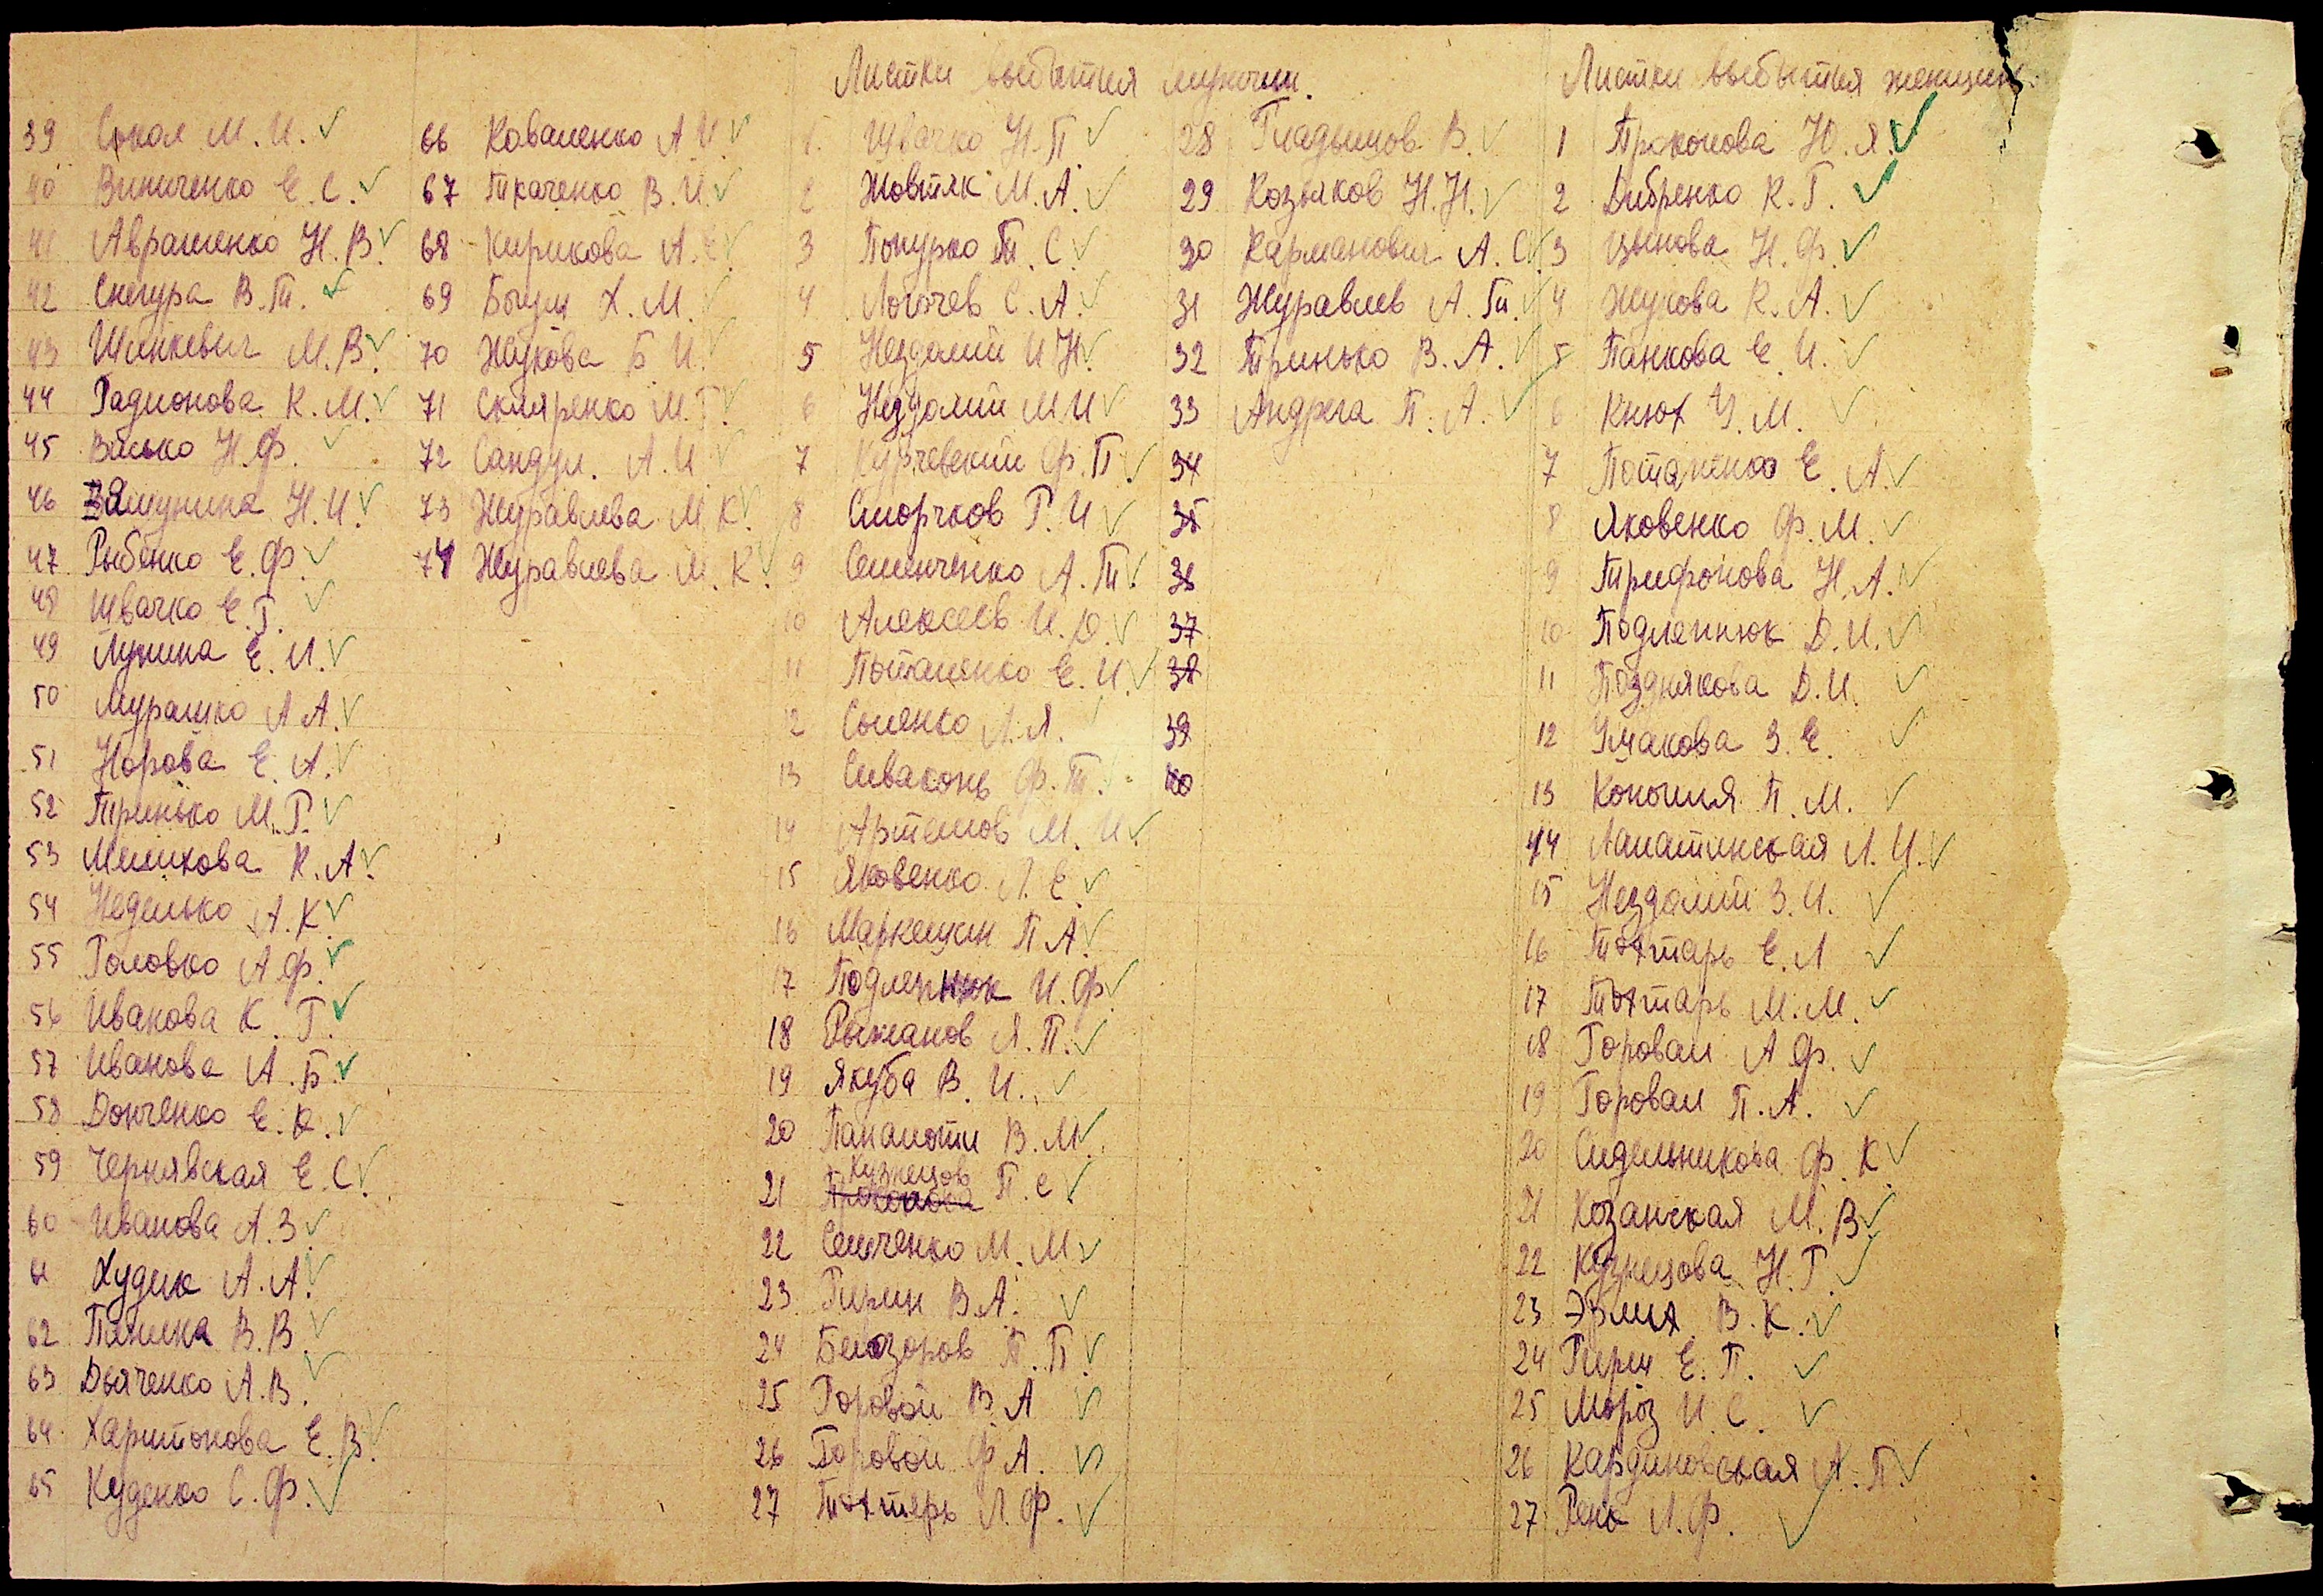 39 Сокол М. И.
40 Винниченко Е. С.
41 Авраменко Н. В.
42 Снегура В. Т.
43 Шинкевич М. В.
44 Радионова К. М.
45 Васько Н. Ф.
46 Замунина Н. И.
47 Рыбенко Е. Ф.
48 Швачко Е. Г.
49 Лунина Е. И.
50 Мурашко А А.
51 Норова Е. А.
52 Тринько М. Г.
53 Мелихова К. А.
54 Неделько А. К.
55 Головко А Ф.
56 Иванова К. Г.
57 Иванова А. Б.
58 Донченко Е. К.
59 Чернявская Е. С.
60 Иванова А. З.
61 Худик А. А.
62 В. В.
63 Дьяченко А. В.
64 Харитонова Е. В.
65 Куденко С. Ф.
66 Коваленко А. И.
67 Ткаченко В. И.
68 Кирикова А. Е.
69 Богуш Х. М.
70 Жукова Б И.
71 Скляренко М. Г.
72 Сандул. А. И
73 Журавлева М. К.
74 Журавлева М. К.
Листки выбытия мужчин.
1. Швачко Н. П
2 Жовтяк М. А.
3 Покурко Т. С.
4 Логачев С. А.
5 Нездолий И Н.
6 Нездолий М И
7 Курчевский Ф. П.
8 Сторчков Г. И
9 Семенченко А. Т.
10 Алексеев И. О.
11 Потапенко Е. И.
12 Соленко Л. Я.
13 Сиваконь Ф. Т.
14 Артемов М. И.
15 Яковенко Л. Е.
16 Маркешин П А.
17 Подлепнюк И. Ф.
18 Рыжанов Я. П.
19 Якуба В. И.
20 Панаиоти В. М.
21 Кузнецов П. С
22 Семченко М. М.
23 Гирин В. А.
24 Белозоров П. П.
25 Горовой В. А
26 Горовой Ф А.
27 Тохтарь Л. Ф.
28 Гладышов В.
29 Козьяков Н. Н.
30 Карманович А. С.
31 Журавлев А. Т.
32 Тринько В. А.
33 Андрега П. А.
34
35
36
37
38
39
40
Листки выбытия женщин.
1 Прокопова Ю. Я.
2 Дибренко К. Г.
3 Цынова Н. Ф.
4 Жукова К. А.
5 Панкова Е. И.
6 Кнюх У. М.
7 Потапенко Е. А.
8 Яковенко Ф. М.
9 Трифонова Н. А.
10 Подлепнюк Д. И.
11 Позднякова Д. И.
12 Ушакова З. Е.
13 Конопля П. М.
14 Лапатинская Л. И.
15 Нездолий З. И.
16 Тохтарь Е. Л
17 Тохтарь М. М.
18 Горовая А Ф.
19 Горовая П. А.
20 Сидельникова Ф. К
21 Козанская М. В.
22 Кузнецова Н. Г.
23 Эрлих В. К.
24 Гирин Е. П.
25 Мороз И. С.
26 Кардиновская А. П.
27 Рень Л. Ф.